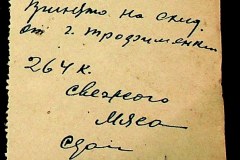 Принято на склад
от г. трофименко
264 к.
свежего
мяса
сдал